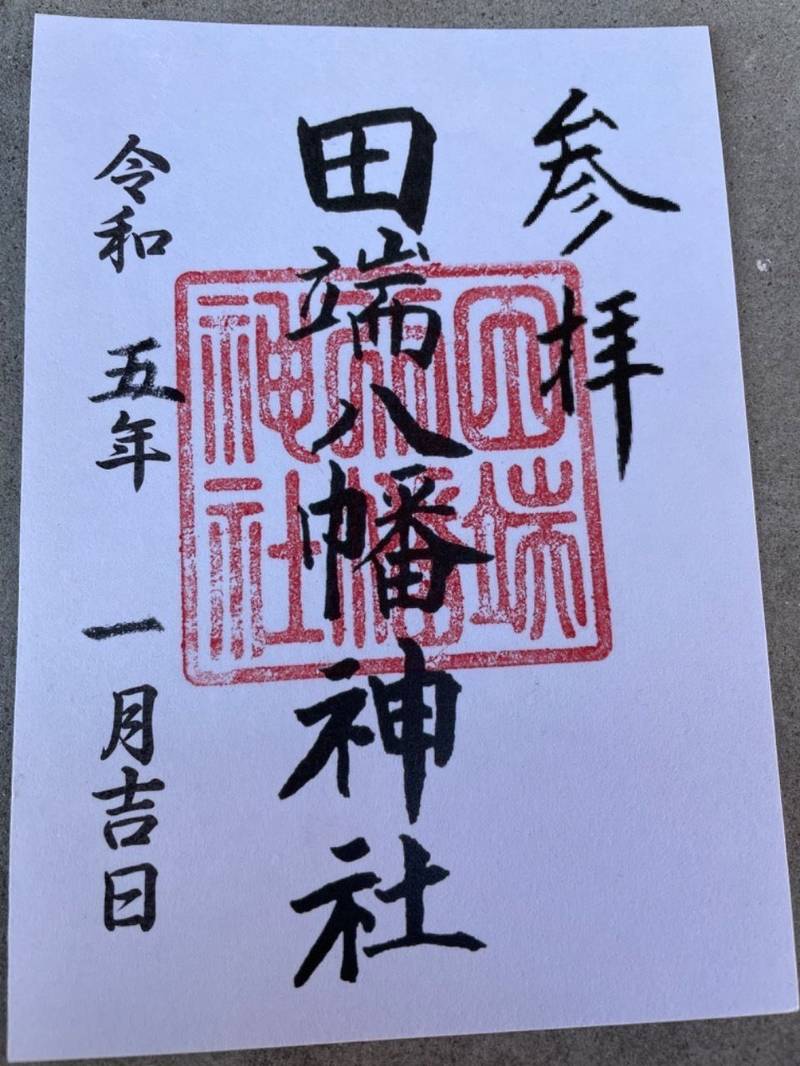 参拝
田端八幡神社
田端八幡神社
令和 五年 一月吉日